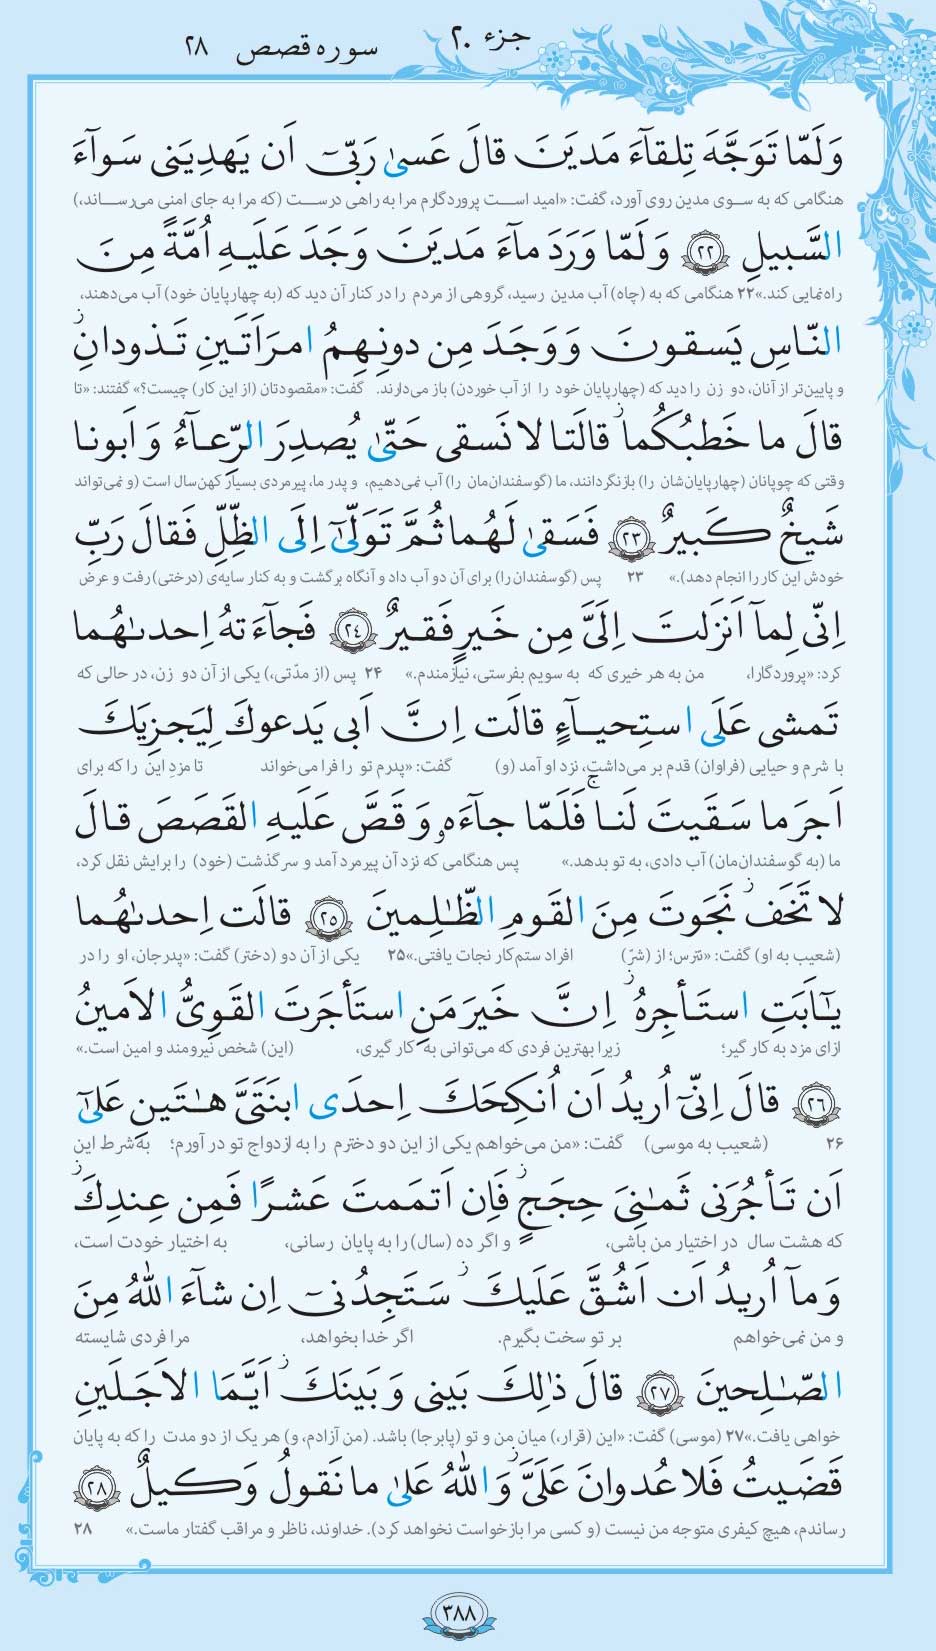 جزء ۲۰
سوره قصص ۲۸
وَلَمّا تَوَجَّهَ تِلقآءَ مَديَنَ قالَ عَسىٰ رَبّىٓ اَن يَهدِيَنى سَوآءَ
هنگامی که به سوی مدین روی آورد، گفت: «امید است پروردگارم مرا به راهی درست (که مرا به جای امنی می‌رساند،)
السَّبيلِ ﴿٢٢﴾ وَ لَمّا وَرَدَ مآءَ مَديَنَ وَجَدَ عَلَيهِ اُمَّةً مِنَ
راه‌نمایی کند.»۲۲ هنگامی که به (چاه) آب مدین رسید، گروهی از مردم را در کنار آن دید که (به چهارپایان خود) آب می‌دهند،
النّاسِ يَسقونَ وَ وَجَدَ مِن دونِهِمُ امرَاَتَينِ تَذودانِ ۖز
و پایین‌تر از آنان، دو زن را دید که (چهارپایان خود را از آب خوردن) باز می‌دارند. گفت: «مقصودتان (از این کار) چیست؟» گفتند: «تا
قالَ ما خَطبُكُما ز قالَتا لا نَسقى حَتّىٰ يُصدِرَ الرِّعآءُ وَ اَبونا
وقتی که چوپانان (چهارپایان‌شان را) بازنگردانند، ما (گوسفندان‌مان را) آب نمی‌دهیم، و پدر ما، پیرمردی بسیار کهن‌سال است (و نمی‌تواند
شَيخٌ كَبيرٌ ﴿٢٣﴾ فَسَقىٰ لَهُما ثُمَّ تَوَلّىٰٓ اِلَى الظِّلِّ فَقالَ رَبِّ
خودش این کار را انجام دهد).» ۲۳ پس (گوسفندان را) برای آن دو آب داد و آنگاه برگشت و به کنار سایه‌ی (درختی) رفت و عرض
اِنّى لِمآ اَنزَلتَ اِلَىَّ مِن خَيرٍ فَقيرٌ ﴿٢٤﴾ فَجآءَتهُ اِحدىٰهُما
کرد: «پروردگارا، من به هر خیری که به سویم بفرستی، نیازمندم.» ۲۴ پس (از مدّتی،) یکی از آن دو زن، در حالی که
تَمشى عَلَى استِحيآءٍ قالَت اِنَّ اَبى يَدعوكَ لِيَجزِيَكَ
با شرم و حیایی (فراوان) قدم بر می‌داشت، نزد او آمد (و) گفت: «پدرم تو را فرا می‌خواند تا مزدِ این را که برای
اَجرَ ما سَقَيتَ لَنا ج فَلَمّا جآءَهو وَ قَصَّ عَلَيهِ القَصَصَ قالَ
ما (به گوسفندان‌مان) آب دادی، به تو بدهد.» پس هنگامی که نزد آن پیرمرد آمد و سرگذشت (خود) را برایش نقل کرد،
لا تَخَف ز نَجَوتَ مِنَ القَومِ الظّٰلِمينَ ﴿٢٥﴾ قالَت اِحدىٰهُما
(شعیب به او) گفت: «نترس؛ از (شرّ) افراد ستم‌کار نجات یافتی.»۲۵ یکی از آن دو (دختر) گفت: «پدرجان، او را در
يٰٓاَبَتِ استَأجِرهُ ز اِنَّ خَيرَ مَنِ استَأجَرتَ القَوِىُّ الاَمينُ
ازای مزد به کار گیر؛ زیرا بهترین فردی که می‌توانی به کار گیری، (این) شخص نیرومند و امین است.»
﴿٢٦﴾ قالَ اِنّىٓ اُريدُ اَن اُنكِحَكَ اِحدَى ابنَتَىَّ هٰتَينِ عَلىٰٓ
۲۶ (شعیب به موسی) گفت: «من می‌خواهم یکی از این دو دخترم را به ازدواج تو در آورم؛ به‌شرط این
اَن تَأجُرَنى ثَمٰنِىَ حِجَجٍ ز فَاِن اَتمَمتَ عَشرًا فَمِن عِندِكَ ز
که هشت سال در اختیار من باشی، و اگر ده (سال) را به پایان رسانی، به اختیار خودت است،
وَ مآ اُريدُ اَن اَشُقَّ عَلَيكَ ز سَتَجِدُنىٓ اِن شآءَ اللهُ مِنَ
و من نمی‌خواهم بر تو سخت بگیرم. اگر خدا بخواهد، مرا فردی شایسته
الصّٰلِحينَ ﴿٢٧﴾ قالَ ذٰلِكَ بَينى وَ بَينَكَ ز اَيَّمَا الاَجَلَينِ
خواهی یافت.»۲۷ (موسی) گفت: «این (قرار،) میان من و تو (پابرجا) باشد. (من آزادم، و) هر یک از دو مدت را که به پایان
قَضَيتُ فَلا عُدوانَ عَلَىَّ ز وَ اللهُ عَلىٰ ما نَقولُ وَكيلٌ ﴿٢٨﴾
رساندم، هیچ کیفری متوجه من نیست (و کسی مرا بازخواست نخواهد کرد). خداوند، ناظر و مراقب گفتار ماست.» ۲۸
۳۸۸